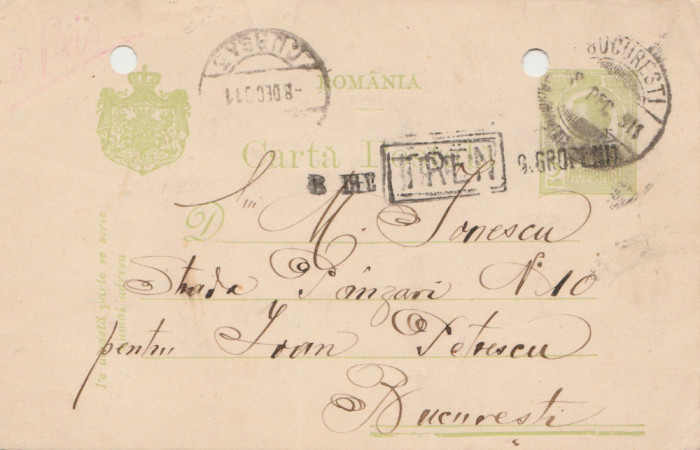 ROMÂNIA
Cartă
8 DEC 911
BUCURESTI
8 DEC 911
TREN
G. GROPENI
D
lui M. Ionescu
Strada Pânzari N. 10
pentru Ioan Petrescu
București
Pe această parte se scrie
numai adresa